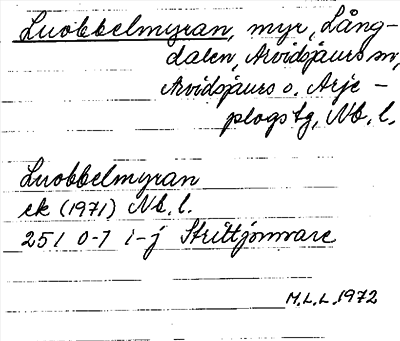 Luobbelmyran, myr, Lång-
dalen, Arvidsjaurs sn,
Arvidsjaurs o. Arje-
plogs tg, Nb. l.
Luobbelmyran
ek (1971) Nb. l.
251 0-1 i-j Strittjomvare
M.L.L. 1972